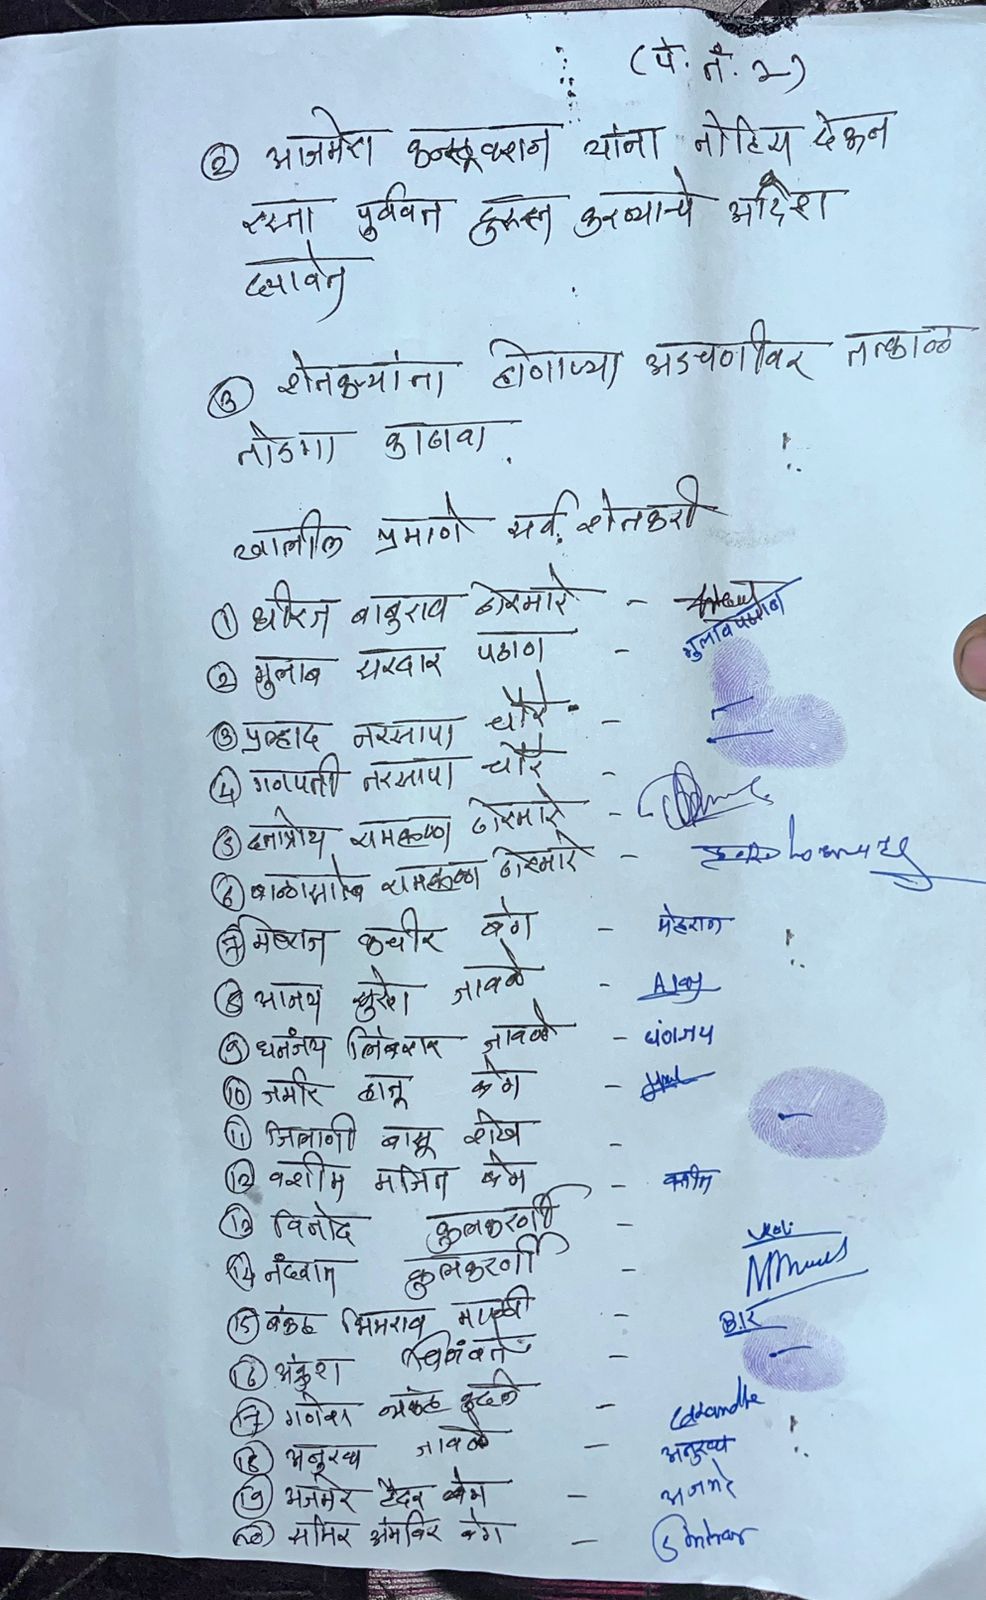 (पे. नं. २)
② आजमेरा कन्स्ट्रक्शन यांना नोटिस देऊन
रस्ता पुर्ववत दुरुस्त करण्याचे आदेश
द्यावेत
③ शेतकऱ्यांना होणाऱ्या अडचणीवर तत्काळ
तोडगा काढावा.
खालील प्रमाणे सर्व शेतकरी
① धीरज बाबुराव ढोरमारे -
② गुलाब सरदार पठाण - गुलाब पठाण
③ प्रल्हाद नरसापा चौरे -
④ गणपती नरसापा चौरे -
⑤ दत्तात्रोय रामकृष्ण ढोरमारे -
⑥ बाळासाहेब रामकृष्ण ढोरमारे -
⑦ मेहराज कबीर बेग - मेहराज
⑧ आजय सुरेश जावळे - Ajay
⑨ धनंजय जावळे - धंनजय
⑩ जमीर बेग -
⑪ जिलानी बासू शेख -
⑫ वशीम मजित बेग - वसीम
⑬ विनोद कुलकरणी -
⑭ कुलकरणी -
⑮ व्यंकट भिमराव -
⑯ अंकुश -
⑰ गणेश व्यंकट -
⑱ अनुरथ जावळे - अनुरथ
⑲ अजमेर हैदर बेग - अजमेर
⑳ समिर बेग -